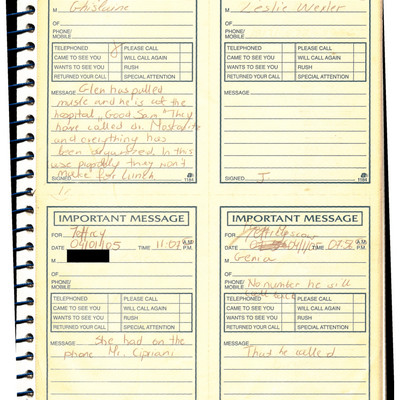 M Ghislaine
OF
PHONE/
MOBILE
TELEPHONED PLEASE CALL
CAME TO SEE YOU WILL CALL AGAIN
WANTS TO SEE YOU RUSH
RETURNED YOUR CALL SPECIAL ATTENTION
MESSAGE Glen has pulled
muscle and he is at the
hospital "Good Sam" They
have called dr.
and everything has
been in this
case they won't
make for lunch
SIGNED 1184
M Leslie Wexler
OF
PHONE/
MOBILE
TELEPHONED PLEASE CALL
CAME TO SEE YOU WILL CALL AGAIN
WANTS TO SEE YOU RUSH
RETURNED YOUR CALL SPECIAL ATTENTION
MESSAGE
SIGNED J 1184
IMPORTANT MESSAGE
FOR Jeffrey
DATE 04/01/05 TIME 11:07 A.M.
P.M.
M
OF
PHONE/
MOBILE
TELEPHONED PLEASE CALL
CAME TO SEE YOU WILL CALL AGAIN
WANTS TO SEE YOU RUSH
RETURNED YOUR CALL SPECIAL ATTENTION
MESSAGE She had on the
phone Mr. Cipriani
IMPORTANT MESSAGE
FOR
DATE 04/1/05 TIME 07:50 A.M.
P.M.
M
OF
PHONE/
MOBILE No number he will
call
TELEPHONED PLEASE CALL
CAME TO SEE YOU WILL CALL AGAIN
WANTS TO SEE YOU RUSH
RETURNED YOUR CALL SPECIAL ATTENTION
MESSAGE
That he called